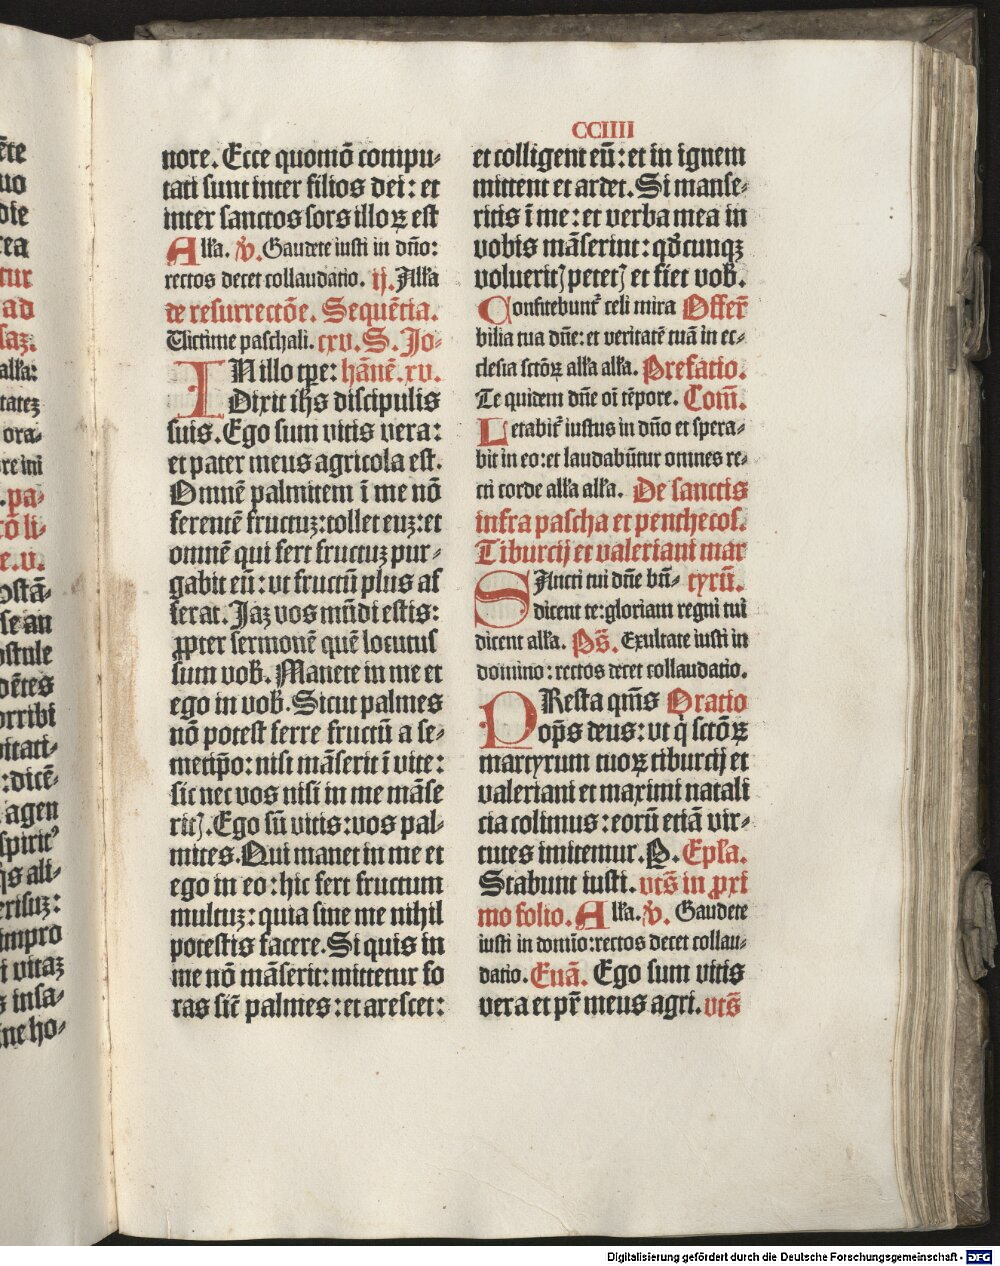 CCIIII
nore. Ecce quomō compu-
tati sunt inter filios dei: et
inter sanctos sors illoꝝ est
Alľa. ℣. Gaudete iusti in dn̄o:
rectos decet collaudatio. ij. Alľa
de resurrectōe. Sequētia.
Victime paschali. cxv. S. Jo-
IN illo tꝑe: hānē. xv.
Dixit ihs discipulis
suis. Ego sum vitis vera:
et pater meus agricola est.
Omnē palmitem ī me nō
ferentē fructuꝫ: tollet euꝫ: et
omnē qui fert fructuꝫ pur-
gabit eū: vt fructū plus af
ferat. Jaꝫ vos mūdi estis:
ꝓpter sermonē quē locutus
sum vob. Manete in me et
ego in vob. Sicut palmes
nō potest ferre fructū a se-
metip̄o: nisi māserit ī vite:
sic nec vos nisi in me māse
rit⁊. Ego sū vitis: vos pal-
mites. Qui manet in me et
ego in eo: hic fert fructum
multuꝫ: quia sine me nihil
potestis facere. Si quis in
me nō māserit: mittetur fo
ras sic̄ palmes: et arescet:
et colligent eū: et in ignem
mittent et ardet. Si manse-
ritis ī me: et verba mea in
vobis māserint: qd̄cunqꝫ
volueritꝭ petetꝭ et fiet vob.
Confitebunt᷑ celi mira Offer̄
bilia tua dn̄e: et veritatē tuā in ec-
clesia sctōꝝ alľa alľa. Prefatio.
Te quidem dn̄e oī tēpore. Com̄.
Letabit᷑ iustus in dn̄o et spera-
bit in eo: et laudabūtur omnes re-
cti corde alľa alľa. De sanctis
infra pascha et penthecos.
Tiburcij et valeriani mar
SAncti tui dn̄e bn̄- txrū.
dicent te: gloriam regni tui
dicent alľa. Ps̄. Exultate iusti in
domino: rectos decet collaudatio.
PResta qm̄s Oratio
op̄s deus: vt q̇ sctōꝝ
martyrum tuoꝝ tiburcij et
valeriani et maximi natali
cia colimus: eorū etiā vir-
tutes imitemur. P. Epľa.
Stabunt iusti. vts̄ in ꝓxi
mo folio. Alľa. ℣. Gaudete
iusti in domīo: rectos decet collau-
datio. Euā. Ego sum vitis
vera et pr̄ meus agri. vts̄
Digitalisierung gefördert durch die Deutsche Forschungsgemeinschaft - DFG